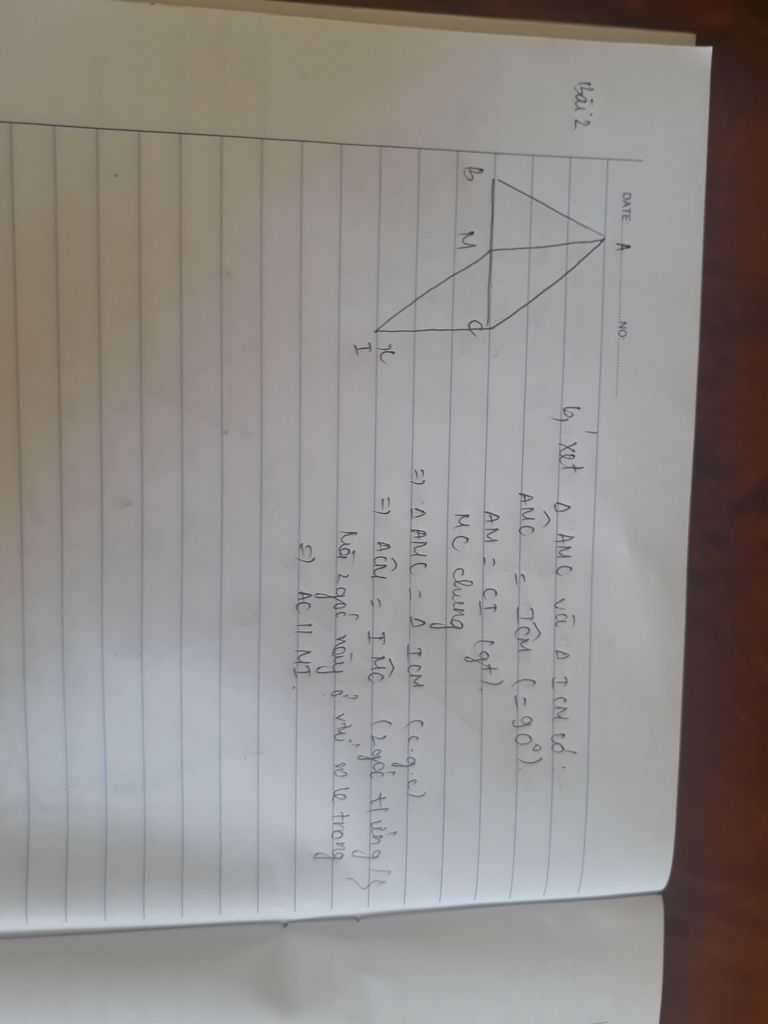 DATE: NO:
Bài 2
A
B M C
x
I
b, xét Δ AMC và Δ ICM có:
AMĈ = IĈM (= 90°).
AM = CI (gt).
MC chung
=) Δ AMC = Δ ICM (c.g.c)
=) AĈM = IM̂C (2 góc t/ứng)
Mà 2 góc này ở vtrí so le trong
=) AC // MI.